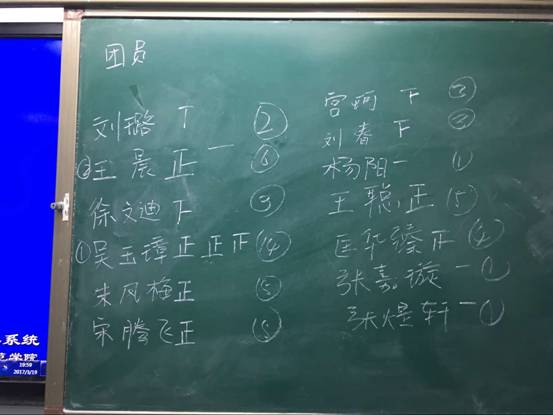 团员
刘璐 丅 ②
② 王晨 正一 ⑥
徐文迪 下 ③
① 吴玉璋 正正正 ⑭
朱凤梅 正 ⑤
宋腾飞 正 ⑤
宫珂 下 ③
刘春 下 ③
杨阳 一 ①
王聪 正 ⑤
匡华臻 正 ④
张嘉漩 一 ①
张煜轩 一 ①
系统
范学院
19:59
2017/9/19